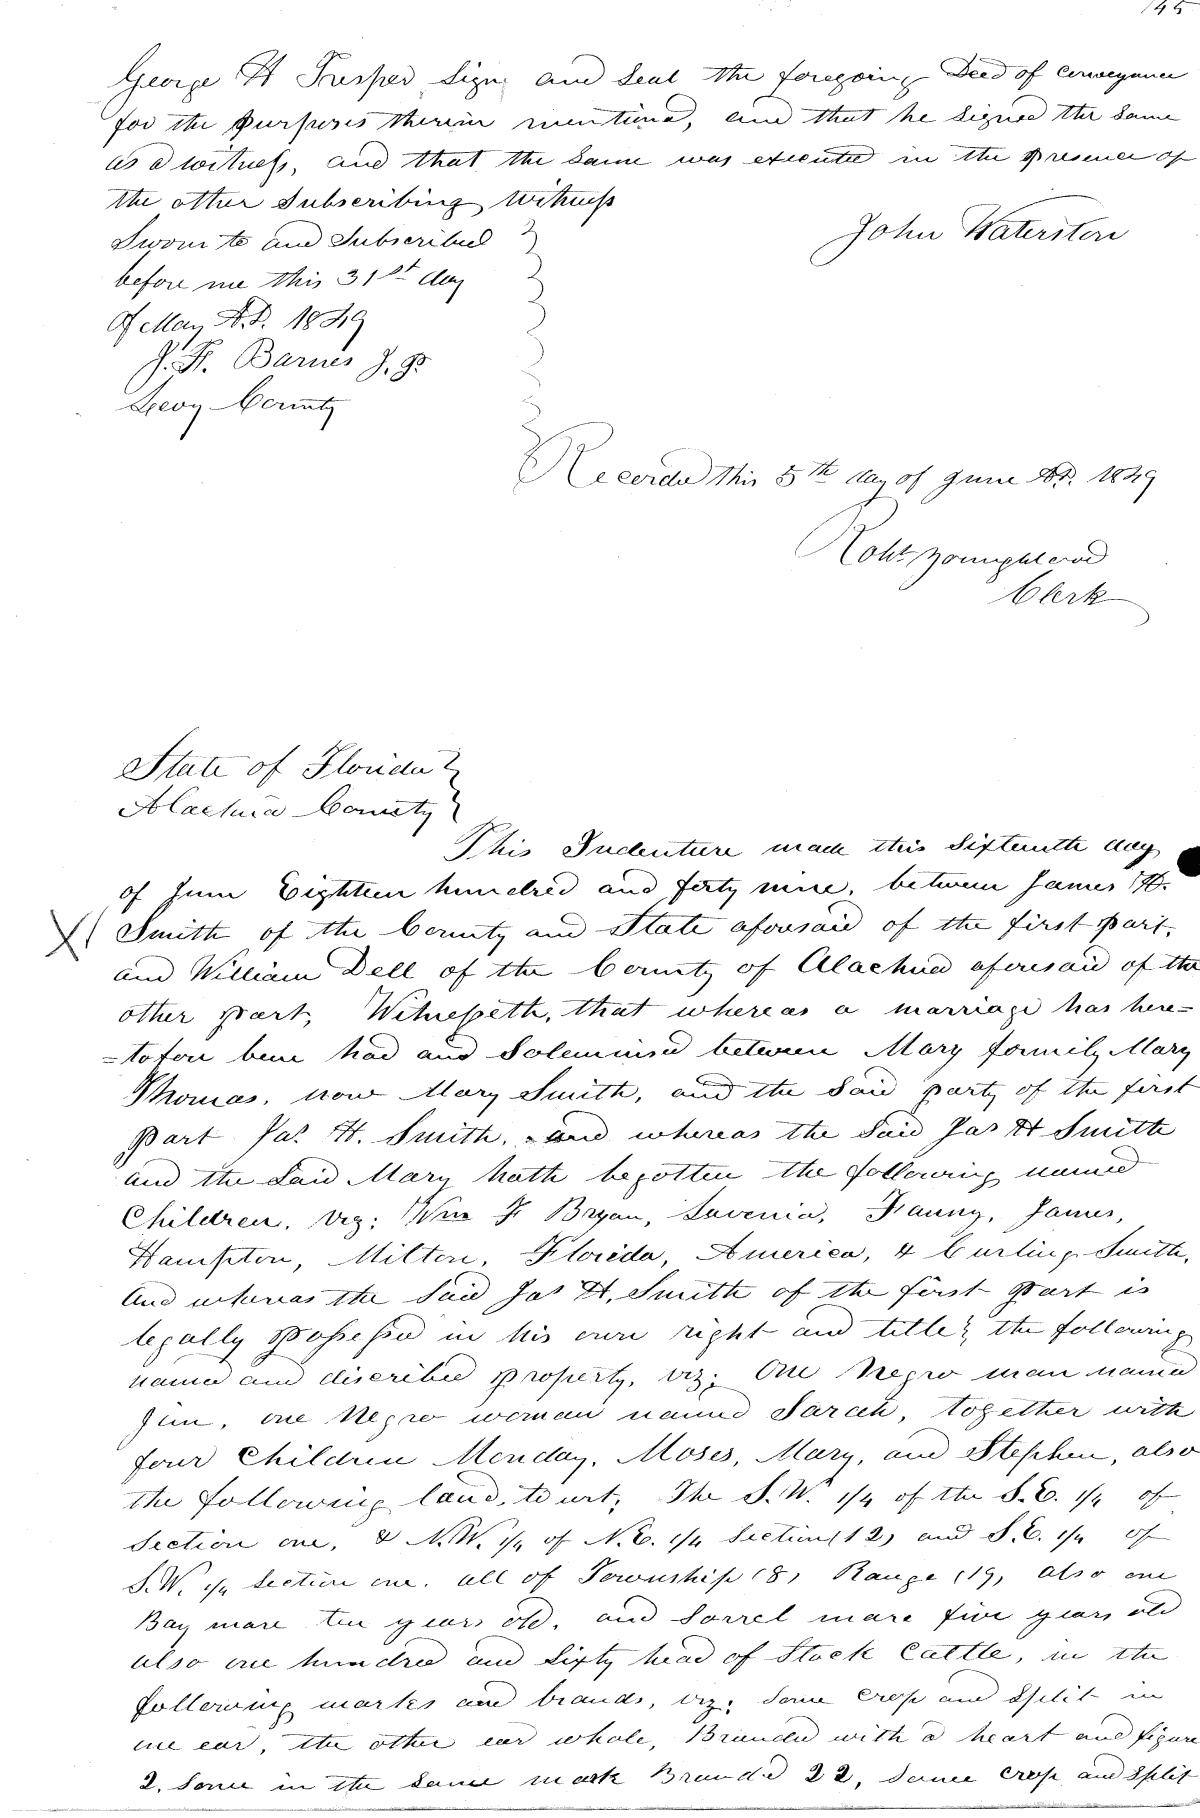 145
George H Tresper Sign and Seal the foregoing Deed of conveyance
for the purposes therein mentiond, and that he Signed the Same
as a witness, and that the Same was executed in the presence of
the other Subscribing Witness
John Waterston
Sworn to and Subscribed
before me this 31st day
of May A.D. 1849
J. F. Barnes J. P.
Levy County
Recorded this 5th day of June AD. 1849
Robt Youngblood
Clerk
State of Florida
Alachua County
This Indenture made this Sixteenth day
of June Eighteen hundred and forty nine, between James H.
X Smith of the County and State aforesaid of the first part,
and William Dell of the County of Alachua aforesaid of the
other part, Witnesseth, that whereas a marriage has here=
=tofore been had and Solemnised between Mary formily Mary
Thomas, now Mary Smith, and the Said party of the first
part Jas H. Smith, and whereas the Said Jas H Smith
and the Said Mary hath begotten the following named
Children, viz: Wm F Bryan, Lavenia, Fanny, James,
Hampton, Milton, Florida, America, & Curling Smith,
And whereas the Said Jas H. Smith of the first part is
legally possessed in his own right and title, the following
named and discribed property, viz; One Negro man named
Jim, one Negro woman named Sarah, together with
four Children Monday, Moses, Mary, and Stephen, also
the following land, to wit, The S.W. 1/4 of the S.E. 1/4 of
Section one, & N.W. 1/4 of N.E. 1/4 Section (12) and S.E. 1/4 of
S.W. 1/4 Section one. all of Township (8) Range (19) also one
Bay mare ten years old, and Sorrel mare five years old
also one hundred and Sixty head of Stock Cattle, in the
following marks and brands, viz; Some Crop and Split in
one ear, the other ear whole, Branded with a heart and figure
2, Some in the Same mark Branded 22, Some Crop and Split